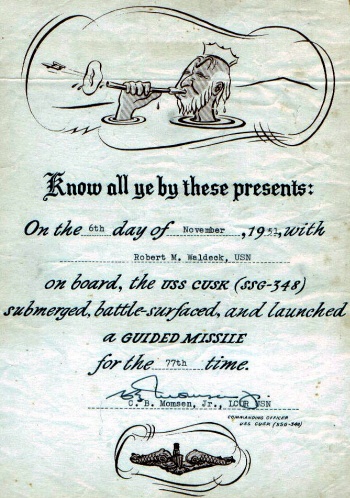 Know all ye by these presents:
On the 6th day of November, 1953, with
Robert M. Waldeck, USN
on board, the USS CUSK (SSG-348)
submerged, battle-surfaced, and launched
a GUIDED MISSILE
for the 77th time.
C. B. Momsen, Jr., LCDR USN
COMMANDING OFFICER
USS CUSK (SSG-348)